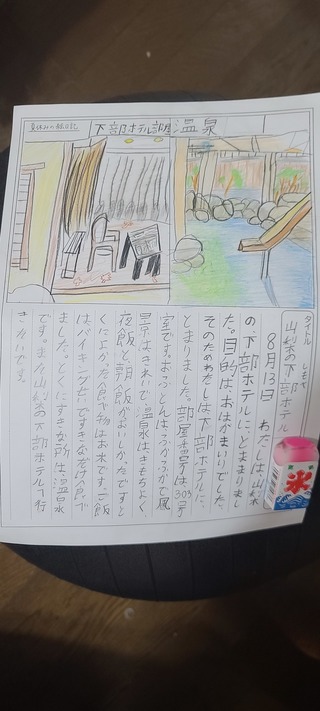 夏休みの絵日記
下部ホテル 温泉
タイトル
しもべ
山梨の下部ホテル
8月13日 わたしは山梨
の、下部ホテルに、とまりまし
た。目的は、おはかまいりでした。
そのためわたしは下部ホテルに、
とまりました。部屋番号は303号
室です。おふとんは、ふかふかで風
景はきれいで、温泉はきもちよく
夜飯と、朝飯がおいしかったですと
くによかった食べ物はお米です。ご飯
はバイキングせいですきなだけ食べ
ました。とくにすきな所は、温泉
です。また山梨の下部ホテルへ行
きたいです。
氷